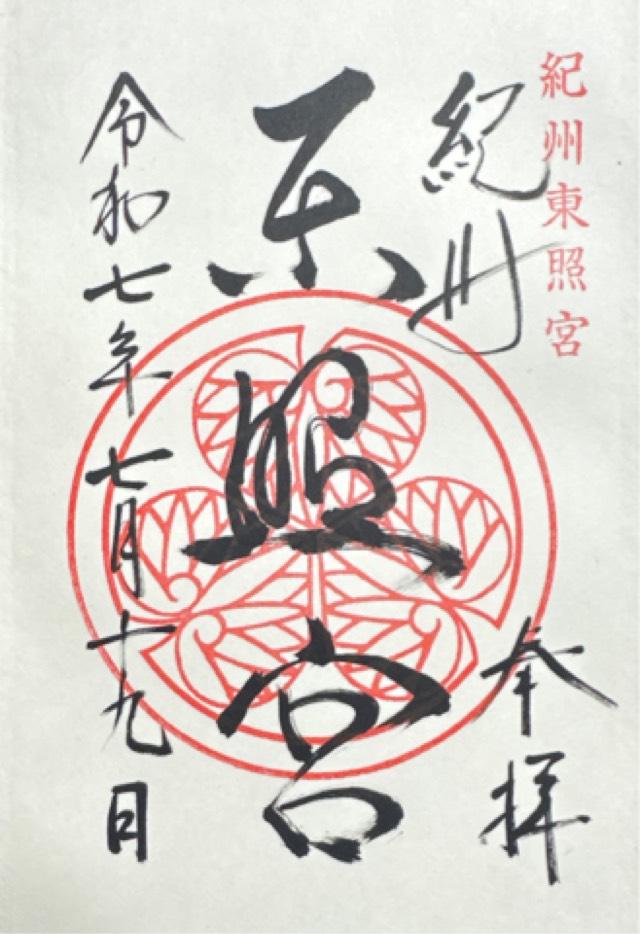 紀州東照宮
紀州
奉拝
東照宮
令和七年七月十九日